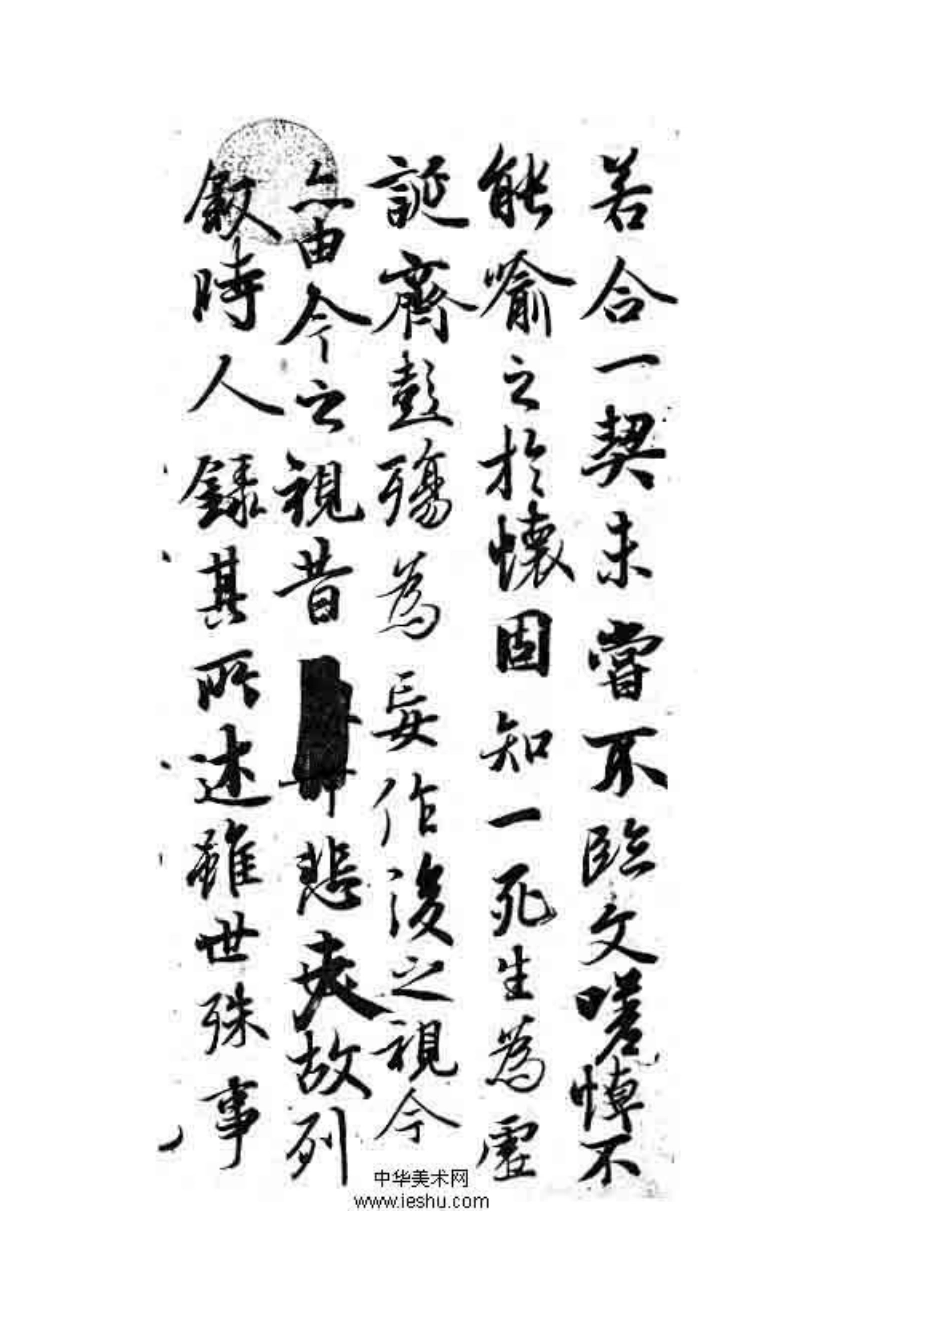 若合一契未嘗不臨文嗟悼不
能喻之於懷固知一死生為虛
誕齊彭殤為妄作後之視今
亦由今之視昔悲夫故列
叙時人錄其所述雖世殊事
中华美术网
www.ieshu.com